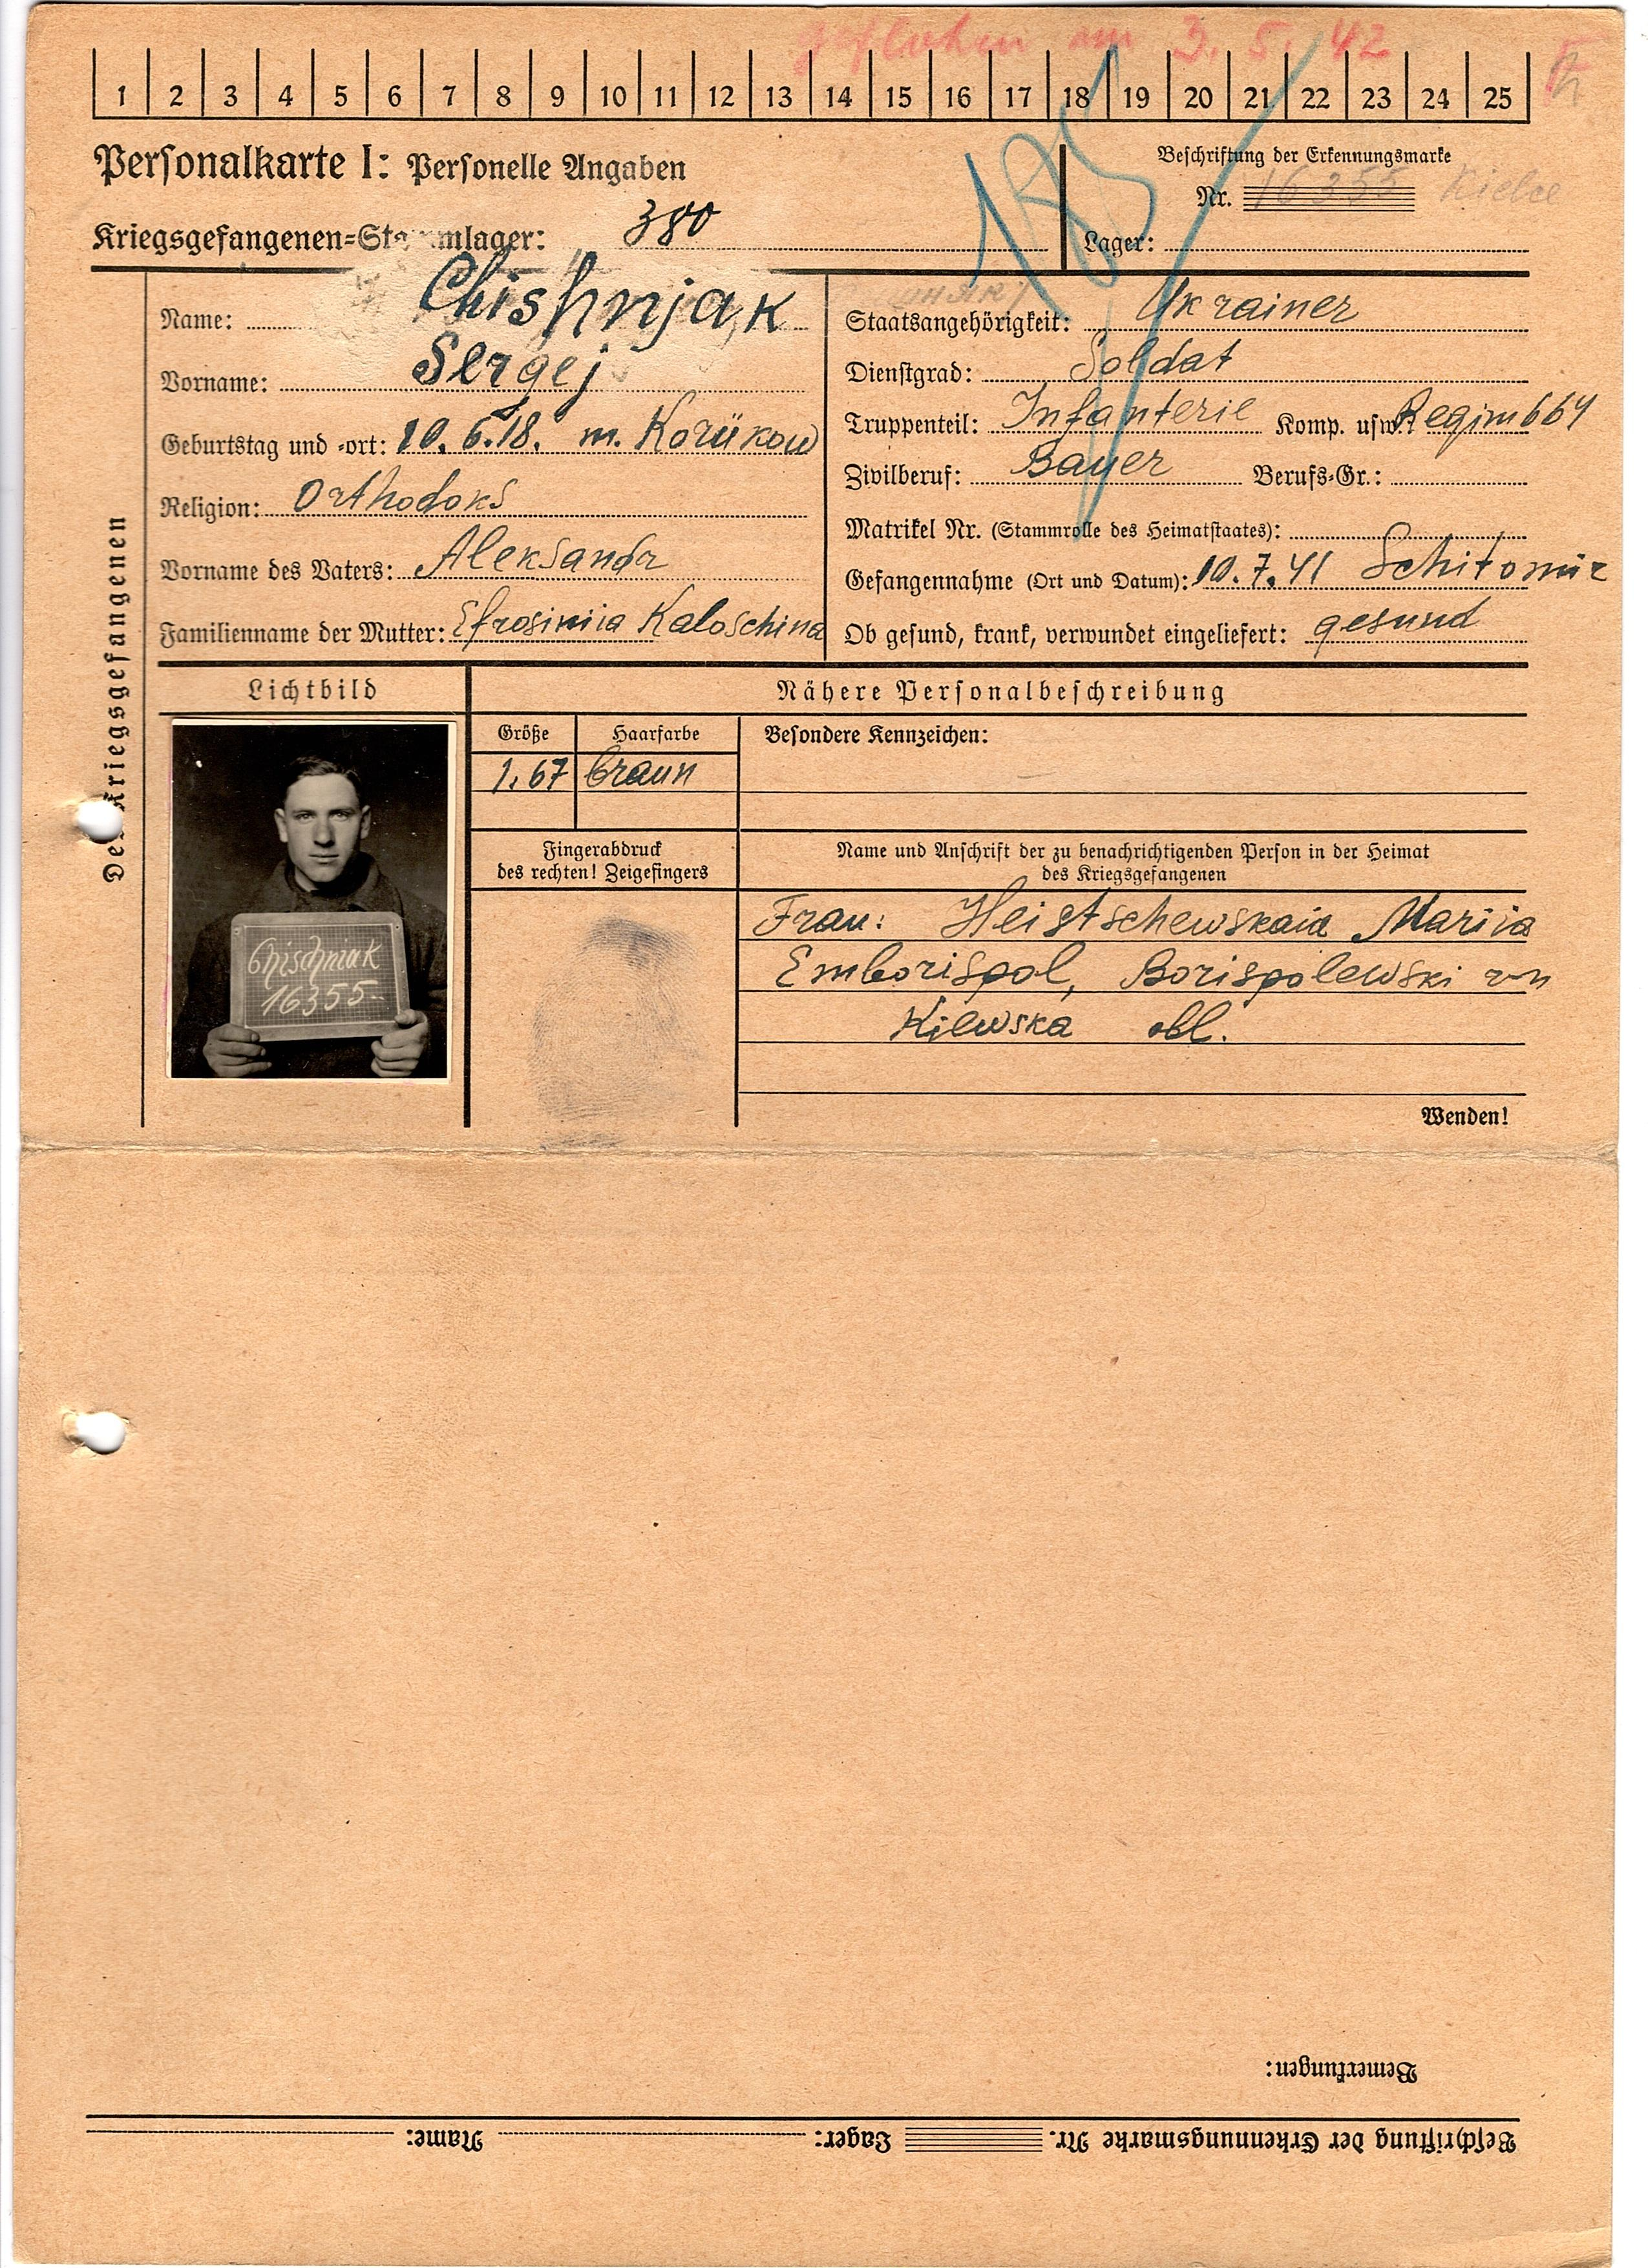 geflohen am 3. 5. 42
1 2 3 4 5 6 7 8 9 10 11 12 13 14 15 16 17 18 19 20 21 22 23 24 25
Personalkarte I: Personelle Angaben
Beschriftung der Erkennungsmarke
Nr. 16355 Kielce
Kriegsgefangenen-Stammlager: 380
Lager:
185
Des Kriegsgefangenen
Name: Chishnjak
Vorname: Sergej
Geburtstag und -ort: 10. 6. 18. m. Korükow
Religion: Orthodoks
Vorname des Vaters: Aleksandr
Familienname der Mutter: Efrosiniia Kaloschina
Staatsangehörigkeit: Ukrainer
Dienstgrad: Soldat
Truppenteil: Infanterie Komp. usw.: Regim 664
Zivilberuf: Bauer Berufs-Gr.:
Matrikel Nr. (Stammrolle des Heimatstaates):
Gefangennahme (Ort und Datum): 10. 7. 41 Schitomir
Ob gesund, krank, verwundet eingeliefert: gesund
Lichtbild
Chischniak
16355-
Nähere Personalbeschreibung
Größe Haarfarbe
1.67 braun
Besondere Kennzeichen:
Fingerabdruck
des rechten! Zeigefingers
Name und Anschrift der zu benachrichtigenden Person in der Heimat
des Kriegsgefangenen
Frau: Heistschewskaia Mariia
Emborispol, Borispolewski
Kiewska obl.
Wenden!
Bemerkungen:
Beschriftung der Erkennungsmarke Nr. Lager: Name: